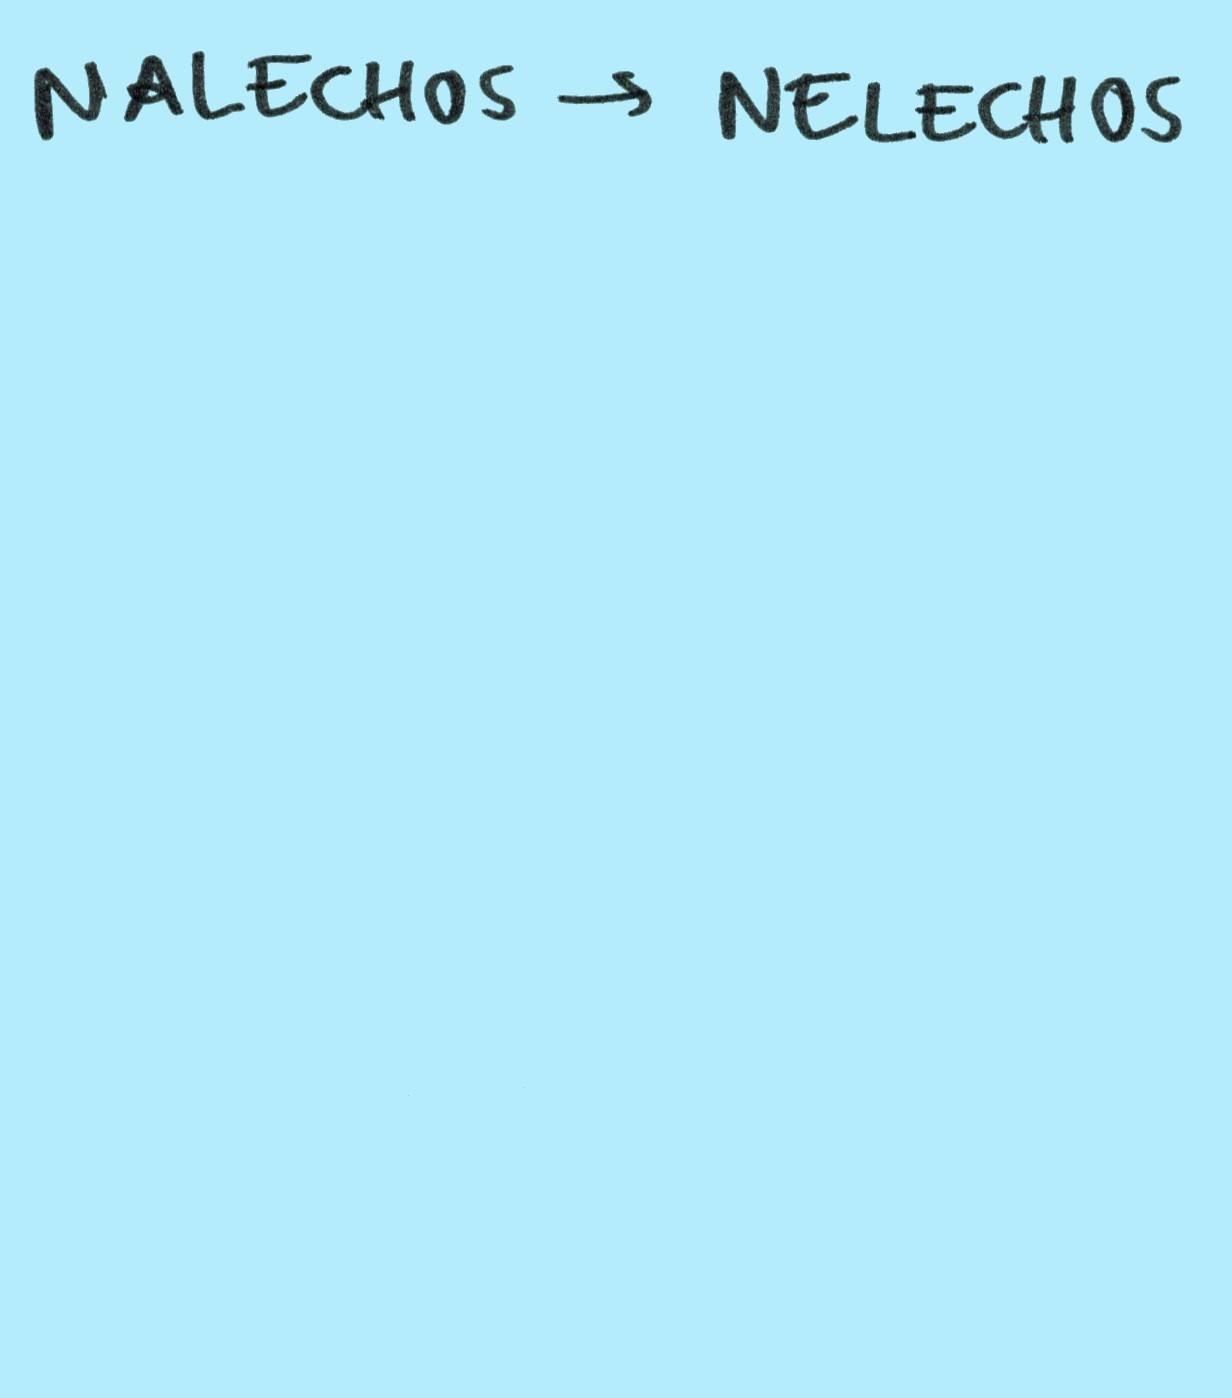 NALECHOS → NELECHOS